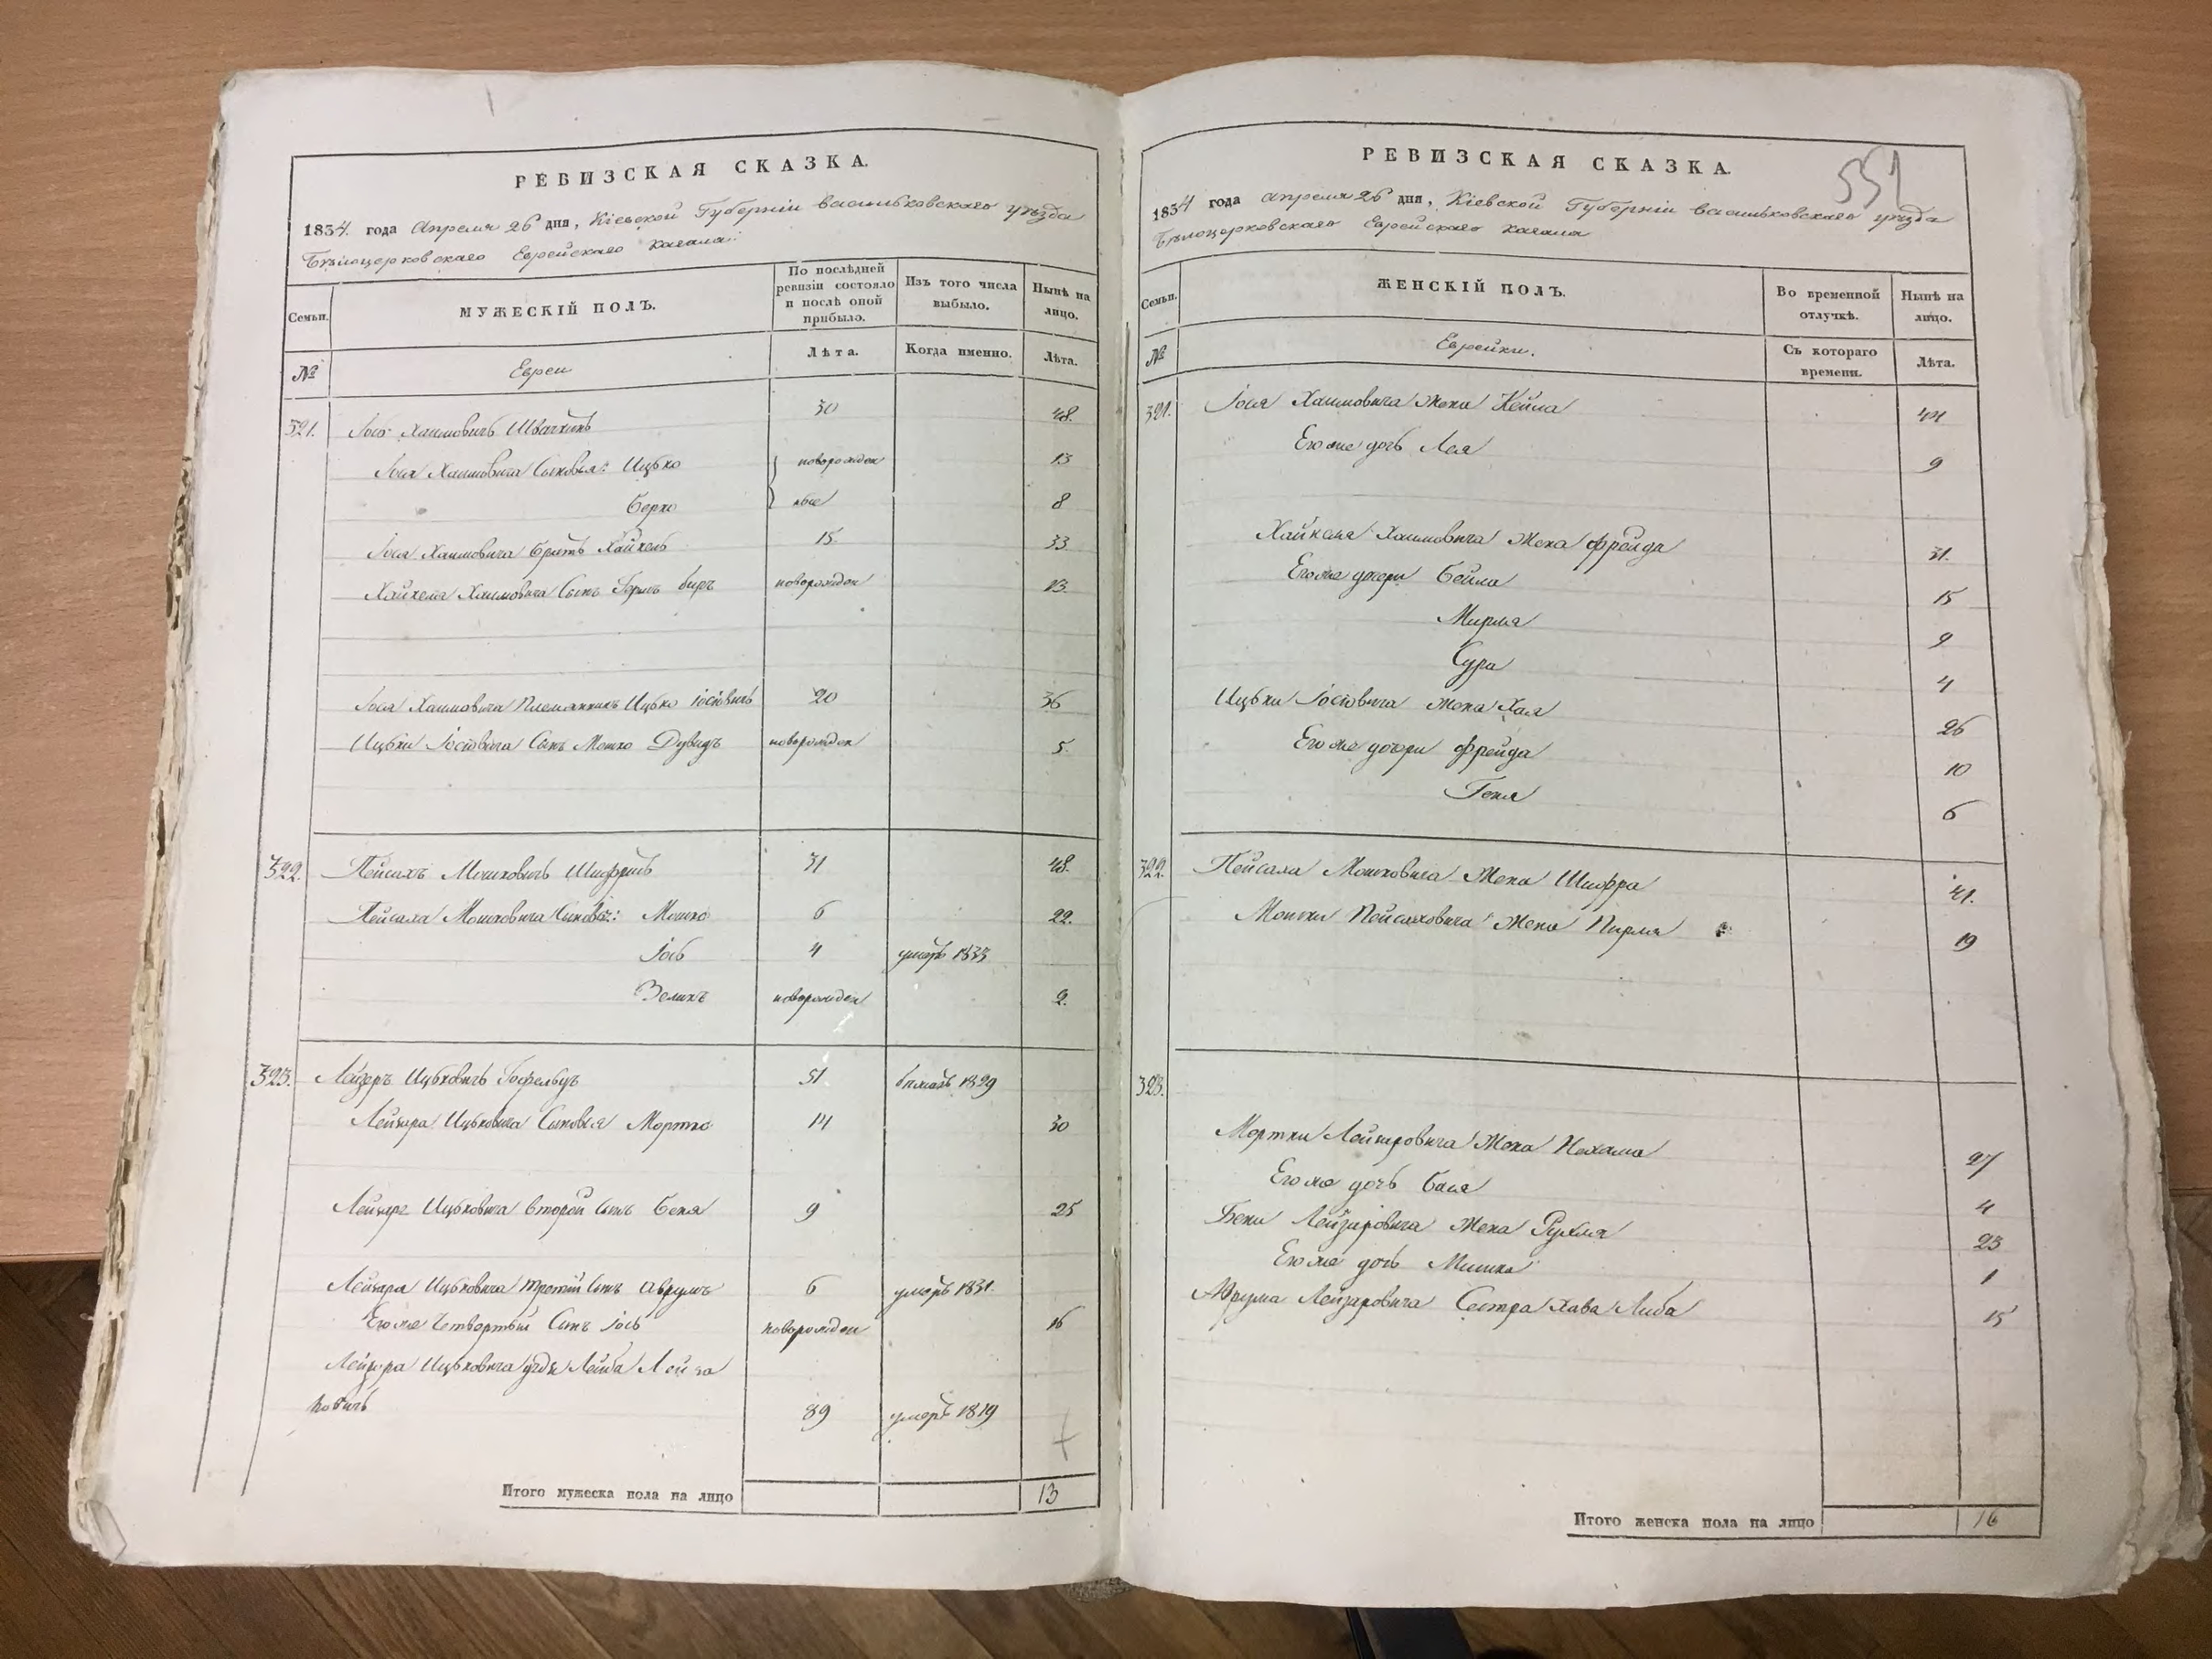 РЕВИЗСКАЯ СКАЗКА.
1834 года Апреля 26 дня, Кіевской Губерніи Васильковскаго уѣзда
Бѣлоцерковскаго Еврейскаго Кагала
Семьи.
МУЖЕСКІЙ ПОЛЪ.
По послѣдней ревизіи состояло и послѣ оной прибыло.
Изъ того числа выбыло.
Нынѣ на лицо.
№
Евреи
Лѣта.
Когда именно.
Лѣта.
321. Іось Хаимовичъ 30 48.
Іося Хаимовича Сыновья: Ицько новорожден 13
Берко ные 8
Іося Хаимовича братъ Хайкель 15 33
Хайкеля Хаимовича Сынъ новорожден 13.
Іося Хаимовича Племянникъ Ицько Іосіовичъ 20 36
Ицьки Іосіовича Сынъ Мошко Дувидъ новорожден 5.
322. Пейсахъ Мошковичъ Шифринъ 31 48.
Пейсаха Мошковича Сыновья: Мошко 6 22.
Іось 4 умеръ 1833
Зелихъ новорожден 2.
323. Лейзеръ Ицьковичъ 51 1829
Лейзера Ицьковича Сыновья Мортко 14 30
Лейзера Ицьковича второй Сынъ Беня 9 25
Лейзера Ицьковича третій Сынъ Аврумъ 6 умеръ 1831.
Его же Четвертый Сынъ Іось новорожден 16
Лейзера Ицьковича дядя Лейба Лейза
ковичъ 39 умеръ 1819
Итого мужеска пола на лицо 13
РЕВИЗСКАЯ СКАЗКА.
551
1834 года Апреля 26 дня, Кіевской Губерніи Васильковскаго уѣзда
Бѣлоцерковскаго Еврейскаго Кагала
Семьи.
ЖЕНСКІЙ ПОЛЪ.
Во временной отлучкѣ.
Нынѣ на лицо.
№
Еврейки.
Съ котораго времени.
Лѣта.
321. Іося Хаимовича Жена Кейла 44
Его же дочь Лея 9
Хайкеля Хаимовича Жена Фрейда 31.
Его же дочери Бейла 15
Мирля 9
Сура 4
Ицьки Іосіовича Жена Хая 26
Его же дочери Фрейда 10
Геня 6
322. Пейсаха Мошковича Жена Шифра 41.
Мошки Пейсаховича Жена Пирля 19
323.
Мортки Лейзеровича Жена Нехама 27
Его же дочь Бася 4
Бени Лейзеровича Жена Рухля 23
Его же дочь 1
Аврума Лейзеровича Сестра Хава Либа 15
Итого женска пола на лицо 16